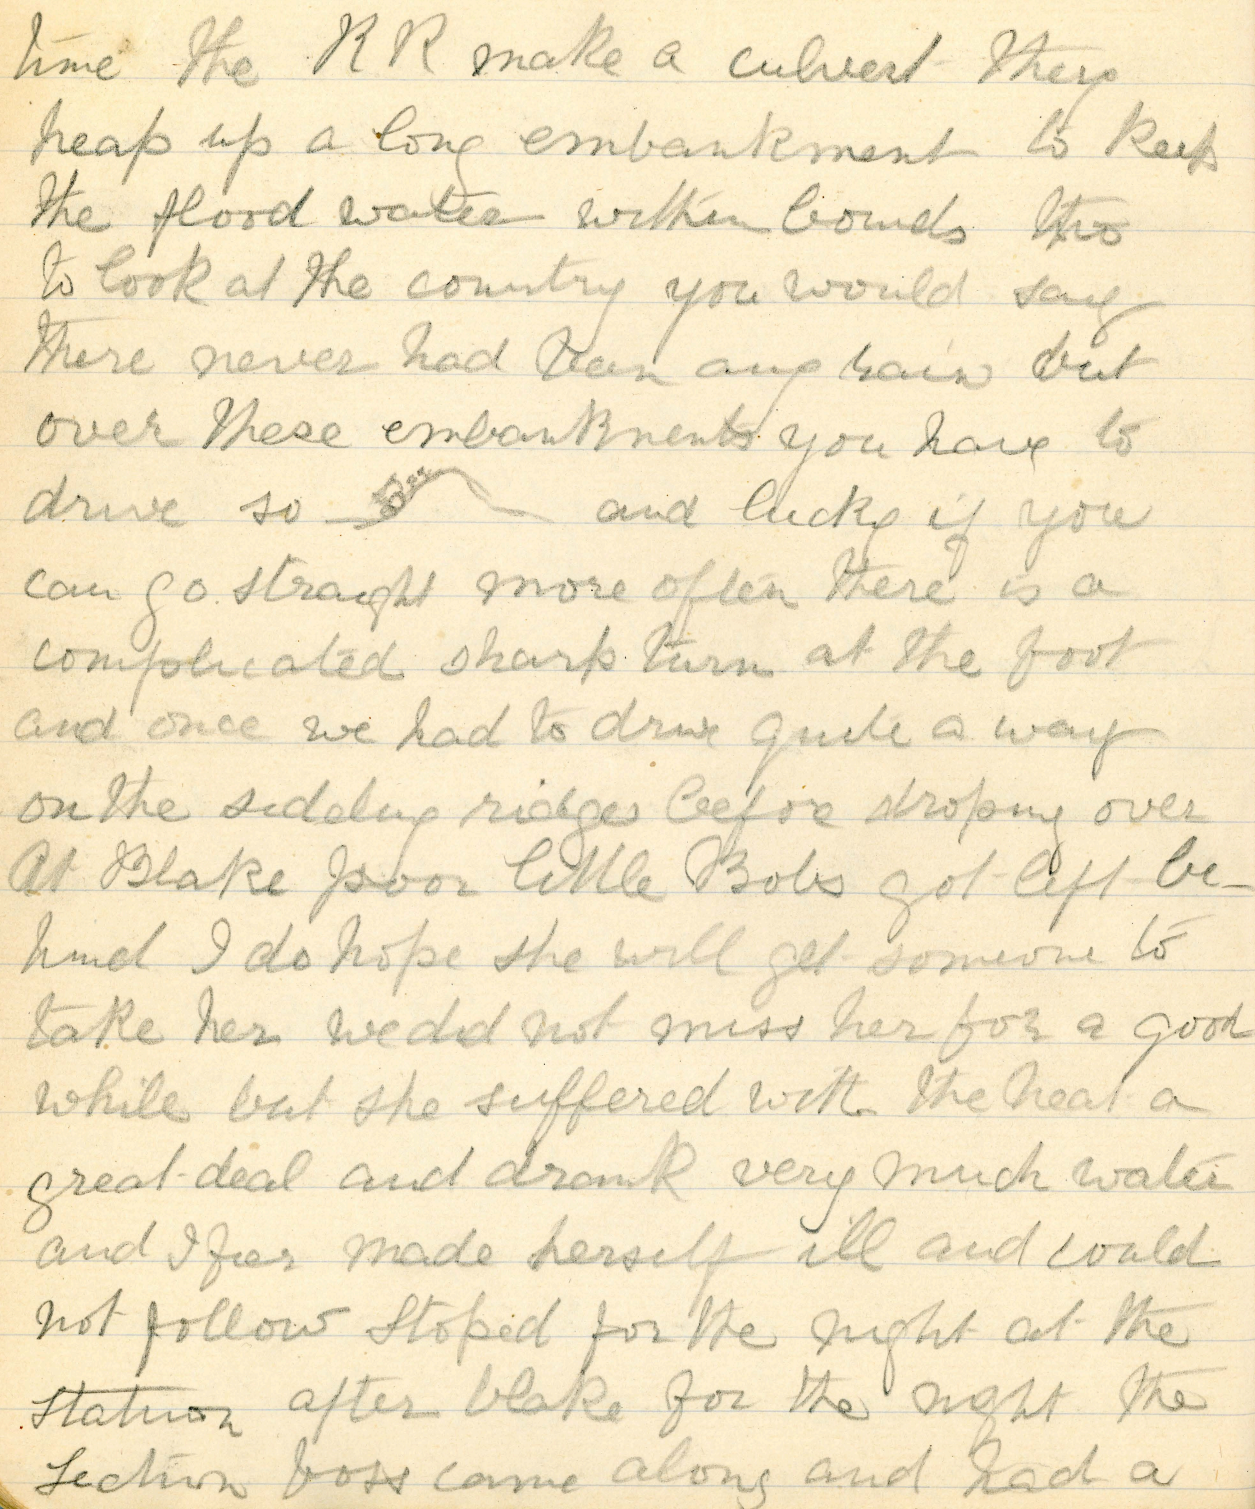 time the RR make a culvert they
heap up a long embankment to keep
the flood water within bounds tho
to look at the country you would say
there never had been any rain but
over these embankments you have to
drive so and lucky if you
can go straight more often there is a
complicated sharp turn at the foot
and once we had to drive quite a way
on the sideling ridges before droping over
At Blake poor little Bobs got left be-
hind I do hope she will get someone to
take her we did not miss her for a good
while but she suffered with the heat a
great deal and drank very much water
and I fear made herself ill and could
not follow Stoped for the night at the
station after blake for the night the
Section boss came along and had a